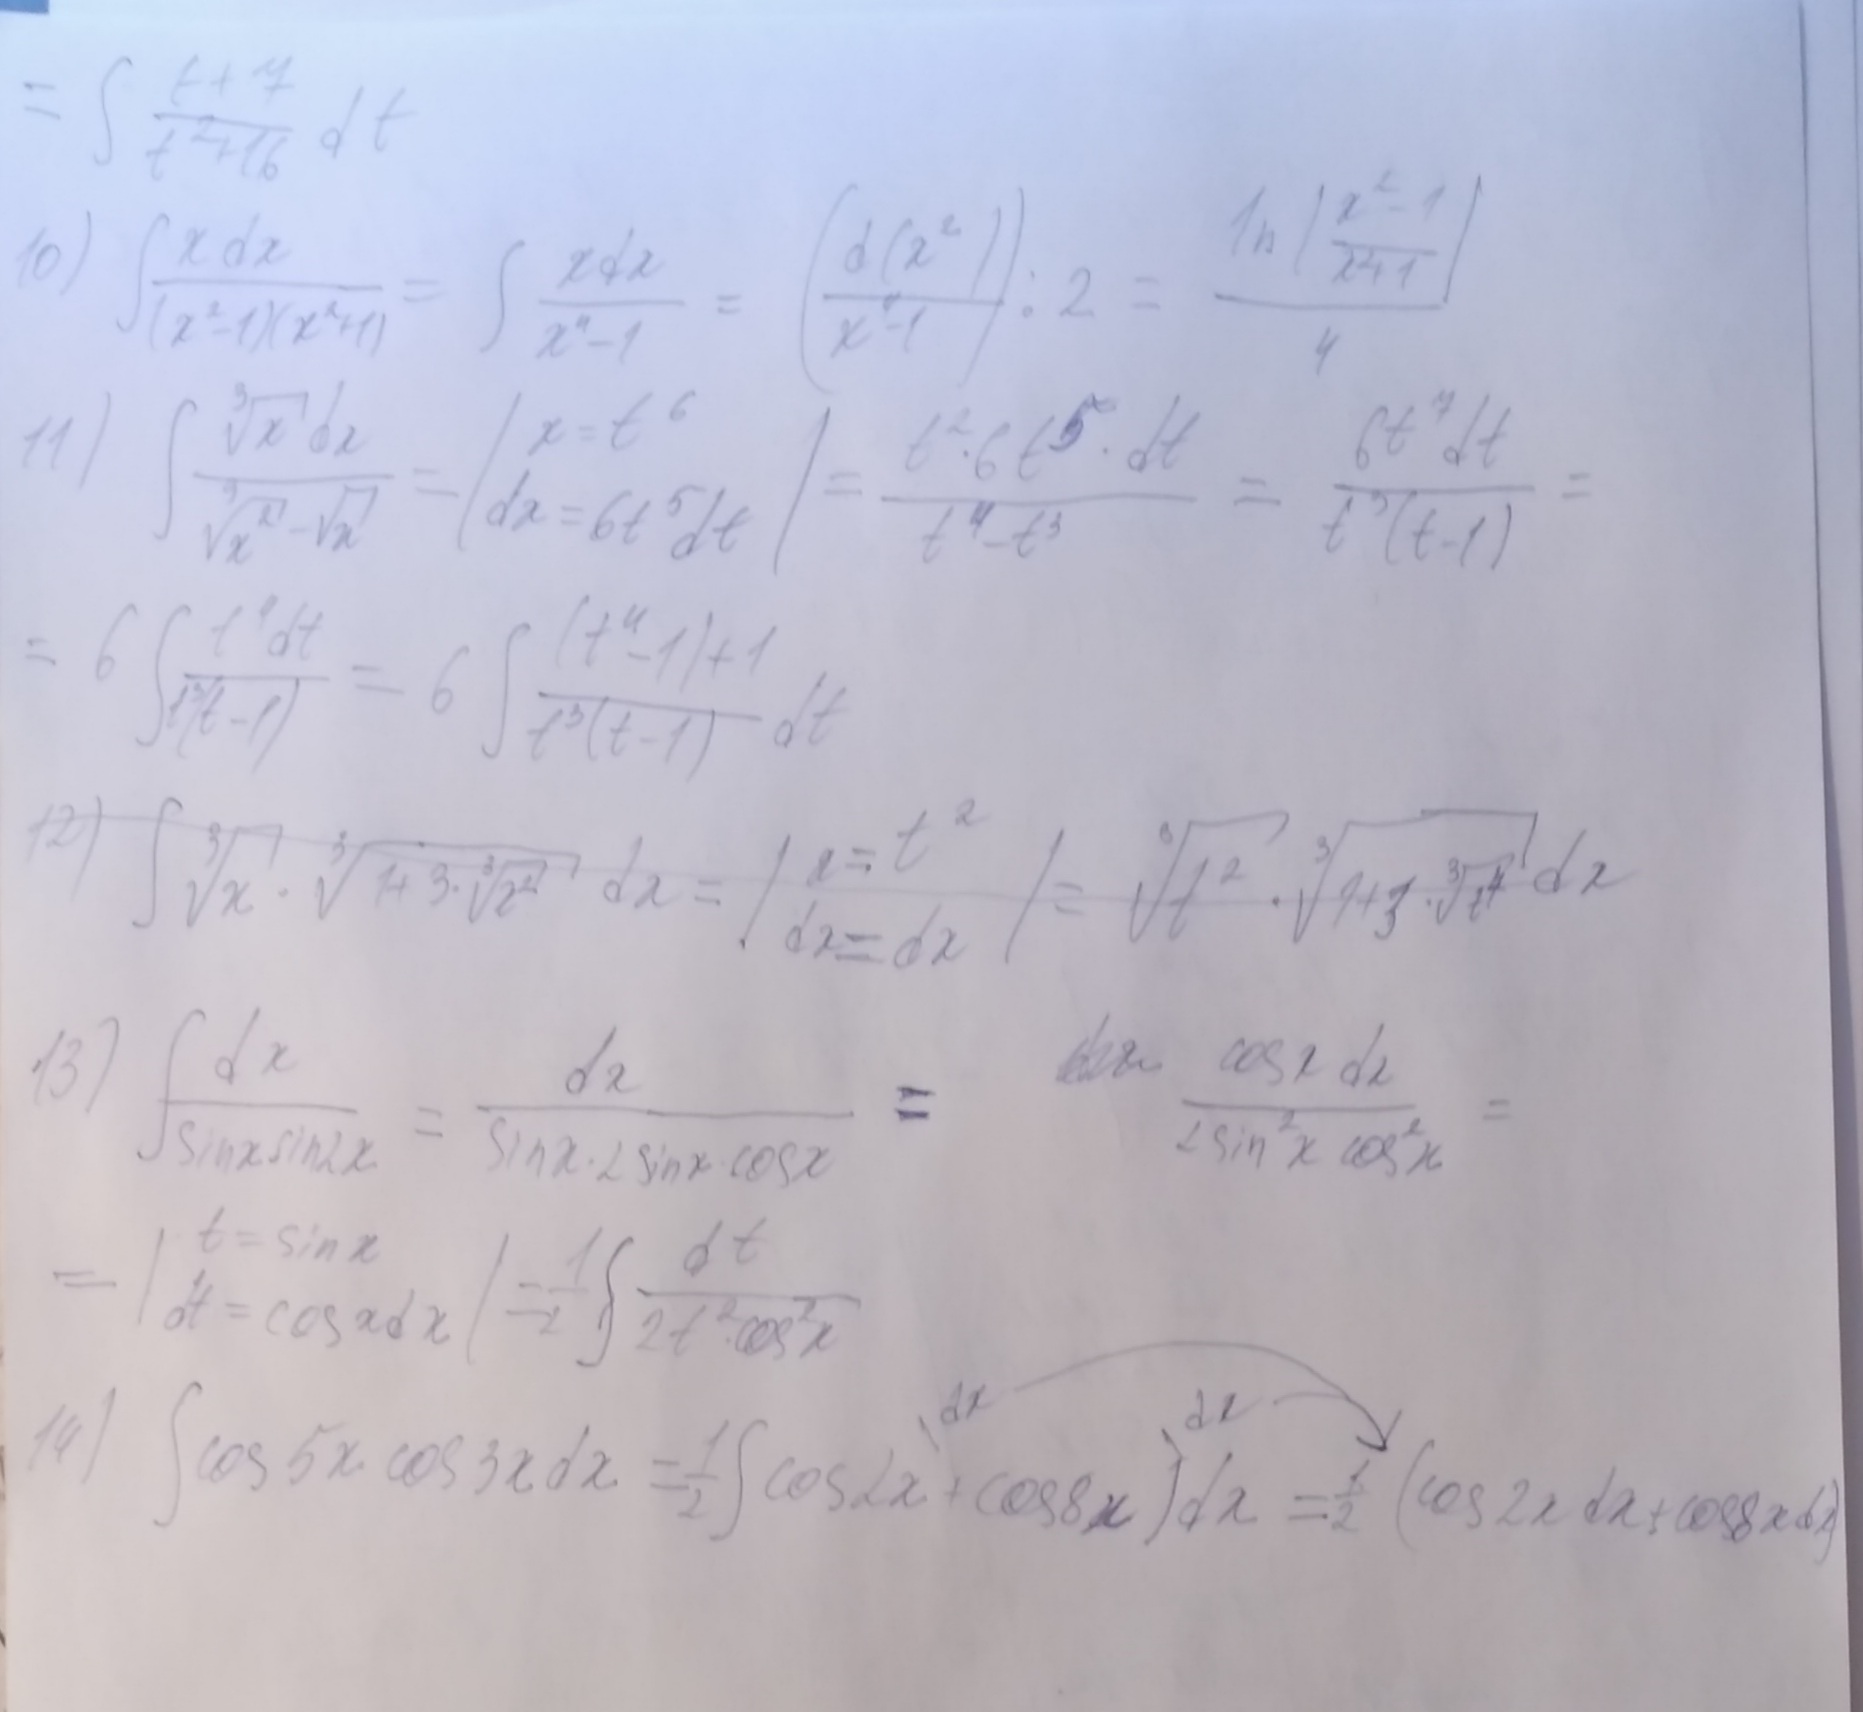 = ∫ (t+7)/(t²+16) dt
10) ∫ x dx/((x²-1)(x²+1)) = ∫ xdx/(x⁴-1) = (d(x²)/(x⁴-1)) : 2 = ln|(x²-1)/(x²+1)|/4
11) ∫ ∛x dx/(∛x² - √x) = | x = t⁶ dx = 6t⁵dt | = t²·6t⁵·dt/(t⁴-t³) = 6t⁷dt/(t³(t-1)) =
= 6 ∫ t⁷dt/(t³(t-1)) = 6 ∫ ((t⁴-1)+1)/(t³(t-1)) dt
12) ∫ ∛x · ∛(1+3·∛x²) dx = | x = t² dx = dx | = ∛t² · ∛(1+3·∛t⁴) dx
13) ∫ dx/(sinx sin2x) = dx/(sinx·2sinx·cosx) = cosx dx/(2sin²x cos²x) =
= | t = sinx dt = cosxdx | = 1/2 ∫ dt/(2t²·cos²x)
dx dx
14) ∫ cos5x cos3xdx = 1/2 ∫ cos2x + cos8x) dx = 1/2 (cos2x dx + cos8xdx)